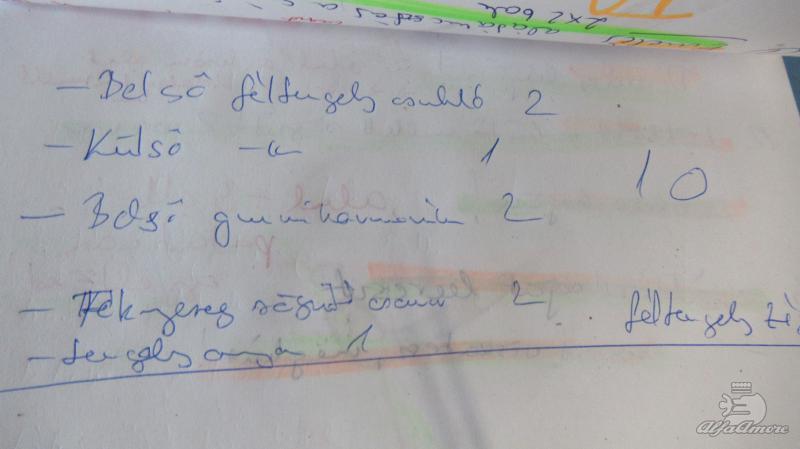 2x2 bal
- Belső féltengely csukló 2
- Külső -"- 1
10
- Belső gumiharmonika 2
- Féknyereg rögzítő csavar 2
féltengely
- tengely anya 1
AlfaAmore